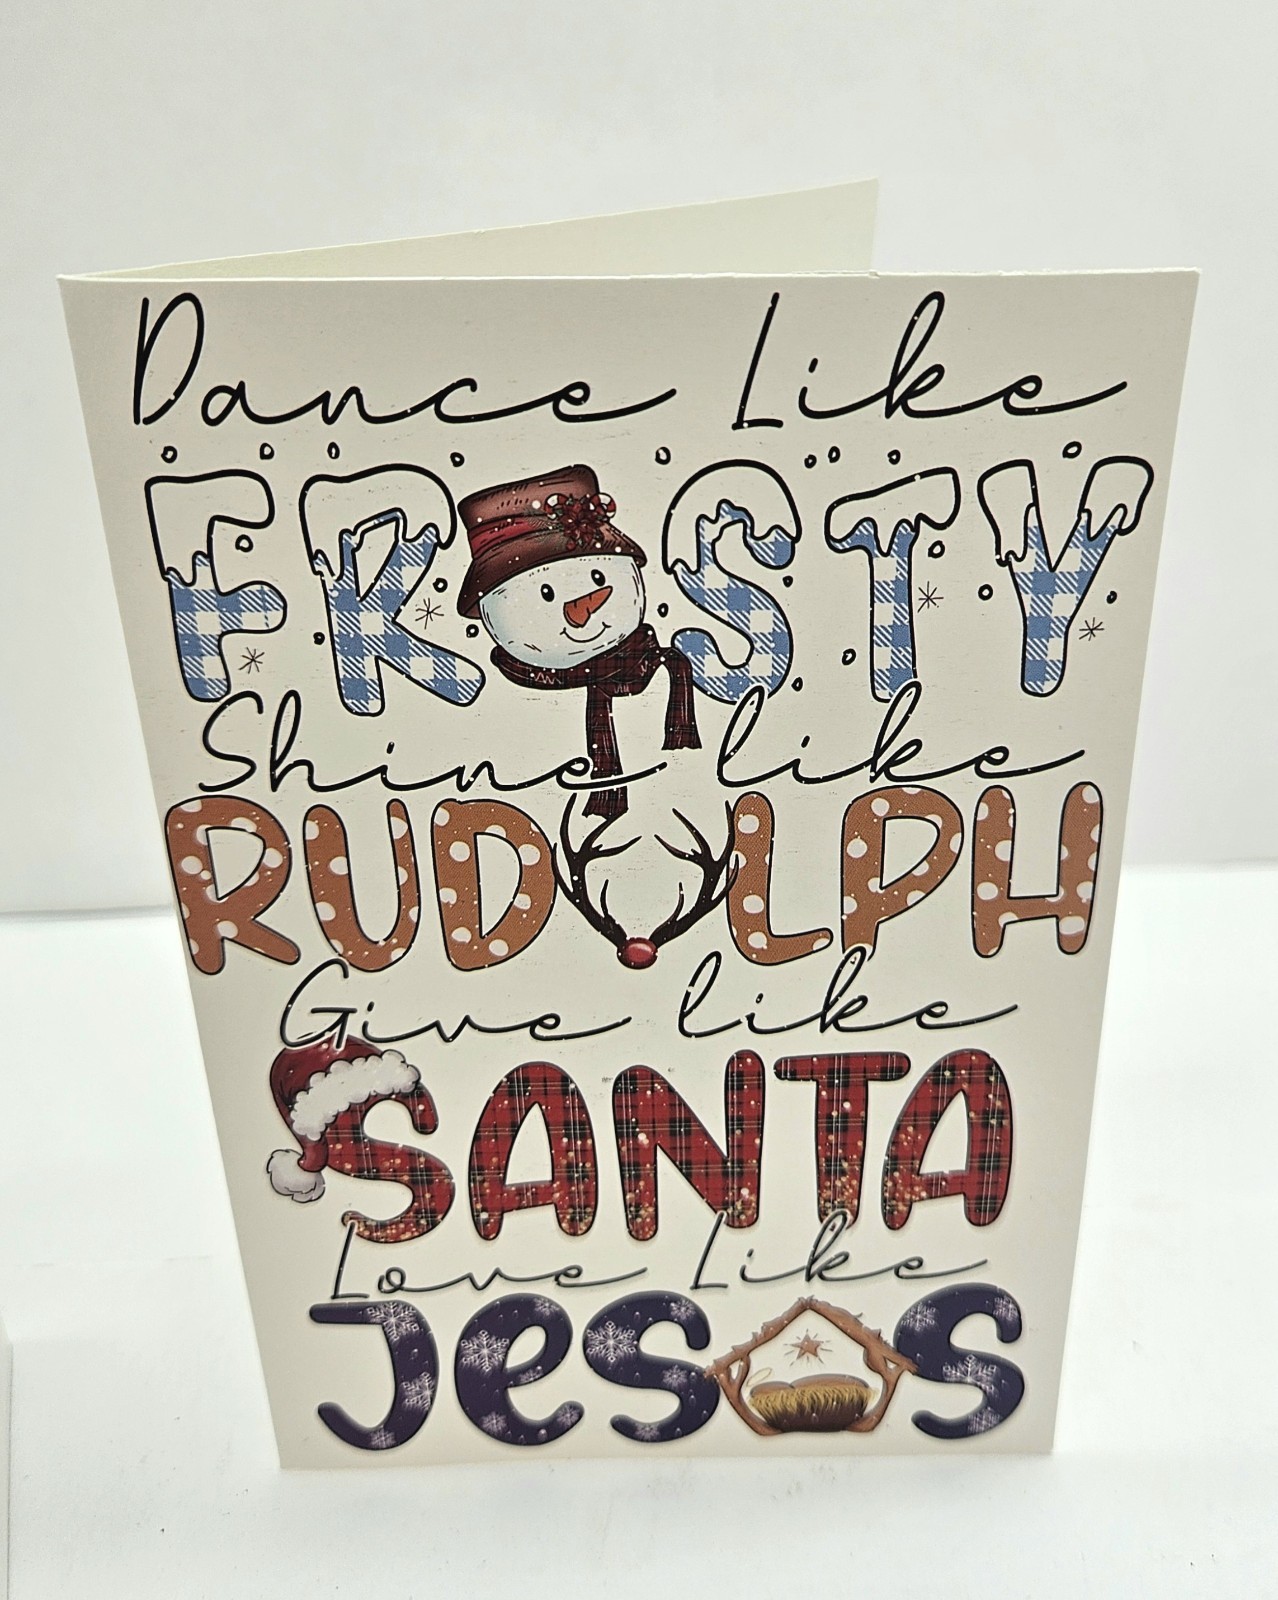 Dance Like
FROSTY
Shine like
RUDOLPH
Give like
SANTA
Love Like
Jesus